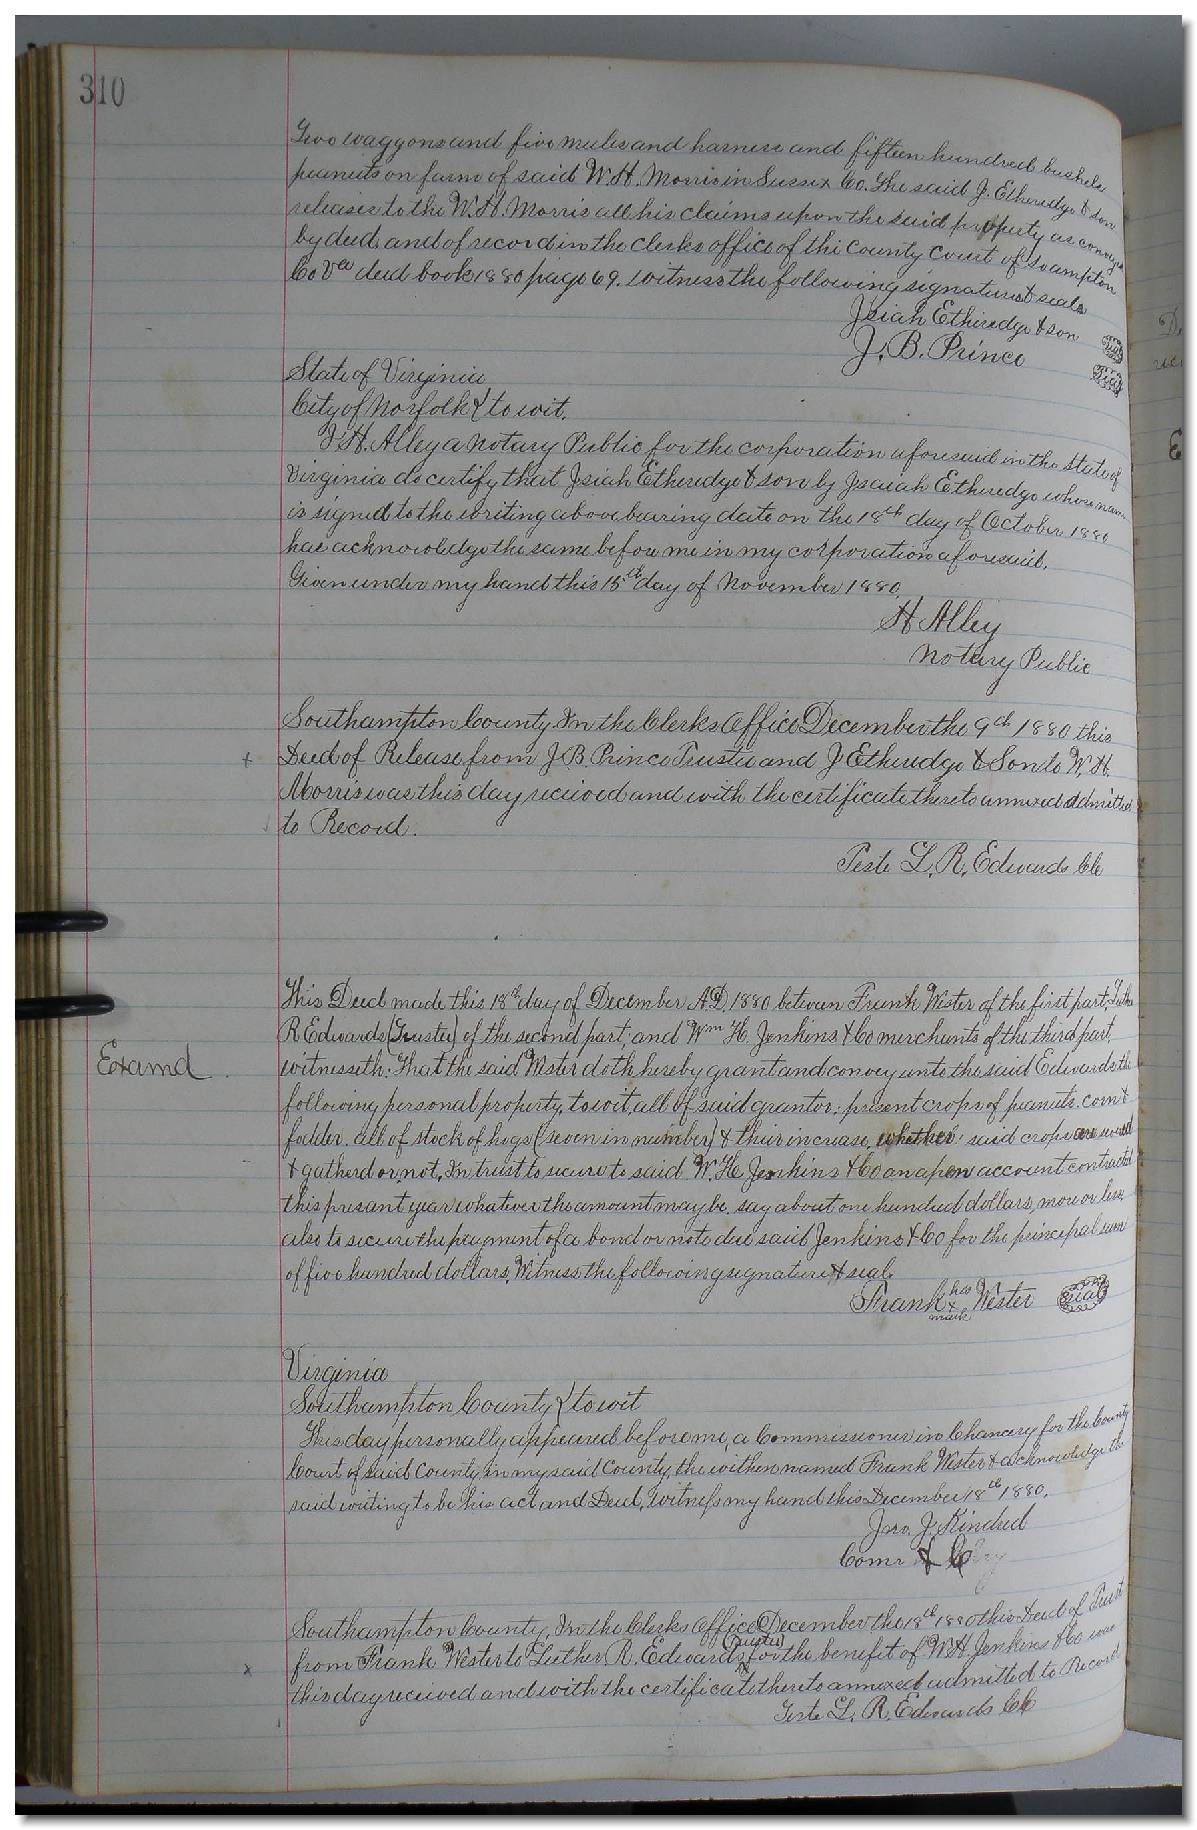 310
Two waggons and five mules and harness and fifteen hundred bushels
peanuts on farm of said W. H. Morris in Sussex Co. The said J. Etheredge & son
releases to the W. H. Morris all his claims upon the said property as conveyed
by deed and of record in the clerks office of the County Court of Soampton
Co Va deed book 1880 page 69. Witness the following signatures & seals
Jsiah Etheredge & son Seal
J. B. Prince Seal
State of Virginia
City of Norfolk } to wit.
I H. Alley a Notary Public for the corporation aforesaid in the state of
Virginia do certify that Jsiah Etheredge & son by Jsaiah Etheredge whose name
is signed to the writing above bearing date on the 18th day of October 1880
has acknowledge the same before me in my corporation aforesaid.
Given under my hand this 15th day of November 1880.
H Alley
Notary Public
Southampton County In the Clerks Office December the 9th 1880 this
+ Deed of Release from J. B. Prince Trustee and J Etheredge & Son to W. H.
Morris was this day received and with the certificate thereto annexed admitted
to Record.
Teste L. R. Edwards Clk
This Deed made this 18th day of December A.D. 1880 between Frank Wester of the first part, Luther
R Edwards (Trustee) of the second part, and Wm H. Jenkins & Co merchants of the third part,
Examd witnesseth: That the said Wester doth hereby grant and convey unto the said Edwards the
following personal property, to wit, all of said grantor; present crops of peanuts. corn &
fodder. all of stock of hogs (seven in number) & their increase, whether said crops are saved
& gatherd or not, In trust to secure to said W. H. Jenkins & Co an open account contracted
this presant year whatever the amount may be, say about one hundred dollars, more or less,
also to secure the payment of a bond or note due said Jenkins & Co for the principal sum
of five hundred dollars, Witness the following signature & seal.
Frank his x mark Wester Seal
Virginia
Southampton County } to wit
This day personally appeared before me, a Commissioner in Chancery for the County
Court of said County, in my said County, the within named Frank Wester & acknowledge the
said writing to be his act and Deed, Witness my hand this December 18th 1880.
Jno. J. Kindred
Comr & C
Southampton County, In the Clerks Office December the 18th 1880 this Deed of Trust
x from Frank Wester to Luther R. Edwards (Trustee) for the benefit of W H Jenkins & Co was
this day received and with the certificate thereto annexed admitted to Record
Teste L. R. Edwards Clk